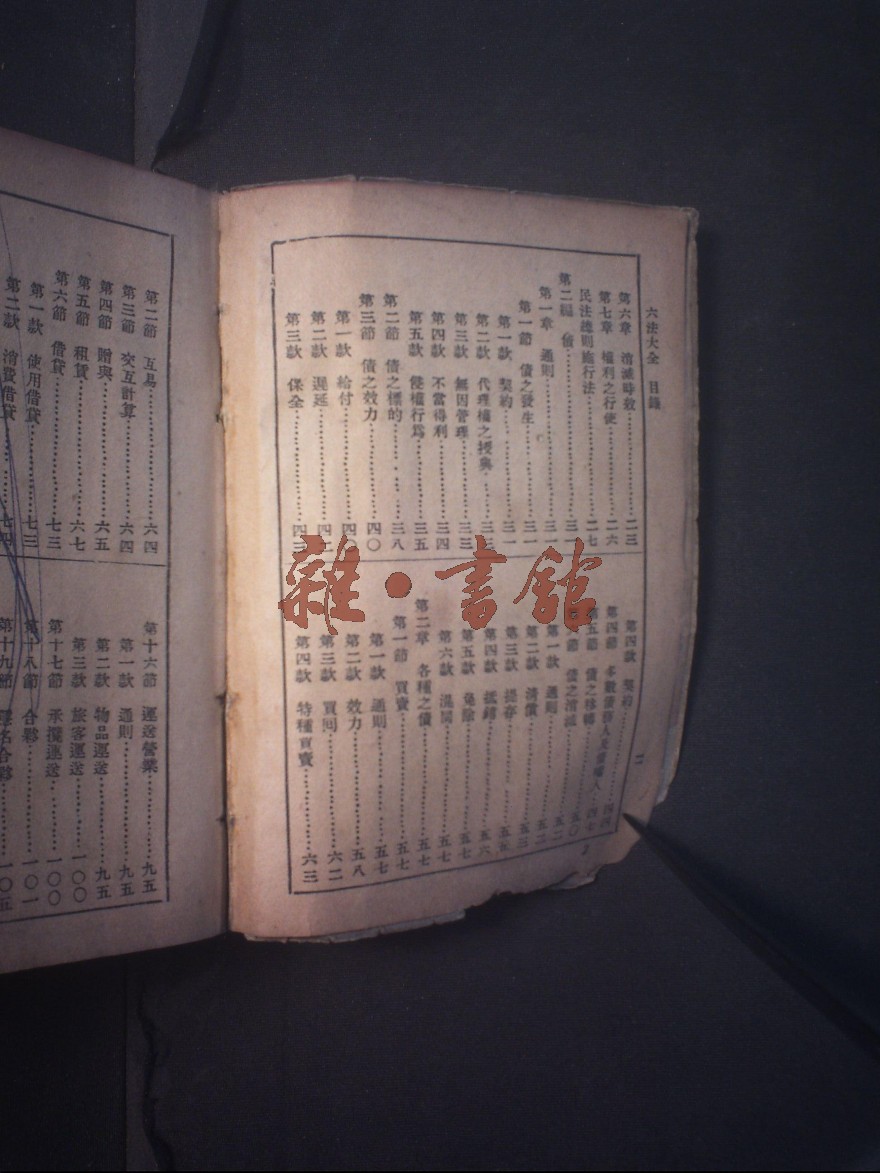 六法大全 目錄
第六章 消滅時效 二三
第七章 權利之行使 二六
民法總則施行法 二七
第二編 債 三一
第一章 通則 三一
第一節 債之發生 三一
第一款 契約 三一
第二款 代理權之授與 三三
第三款 無因管理 三三
第四款 不當得利 三四
第五款 侵權行爲 三五
第二節 債之標的 三八
第三節 債之效力 四〇
第一款 給付 四〇
第二款 遲延 四二
第三款 保全 四三
第四款 契約 四四
第四節 多數債務人及債權人 四七
第五節 債之移轉 五〇
債之消滅 五二
第一款 通則 五二
第二款 清償 五三
第三款 提存 五五
第四款 抵銷 五六
第五款 免除 五七
第六款 混同 五七
第二章 各種之債 五七
第一節 買賣 五七
第一款 通則 五七
第二款 效力 五八
第三款 買回 六二
第四款 特種買賣 六三
二
雜·書館
第二節 互易 六四
第三節 交互計算 六四
第四節 贈與 六五
第五節 租賃 六七
第六節 借貸 七三
第一款 使用借貸 七三
第二款 消費借貸 七四
第十六節 運送營業 九五
第一款 通則 九五
第二款 物品運送 九五
第三款 旅客運送 一〇〇
第十七節 承攬運送 一〇〇
第十八節 合夥 一〇一
第十九節 隱名合夥 一〇五